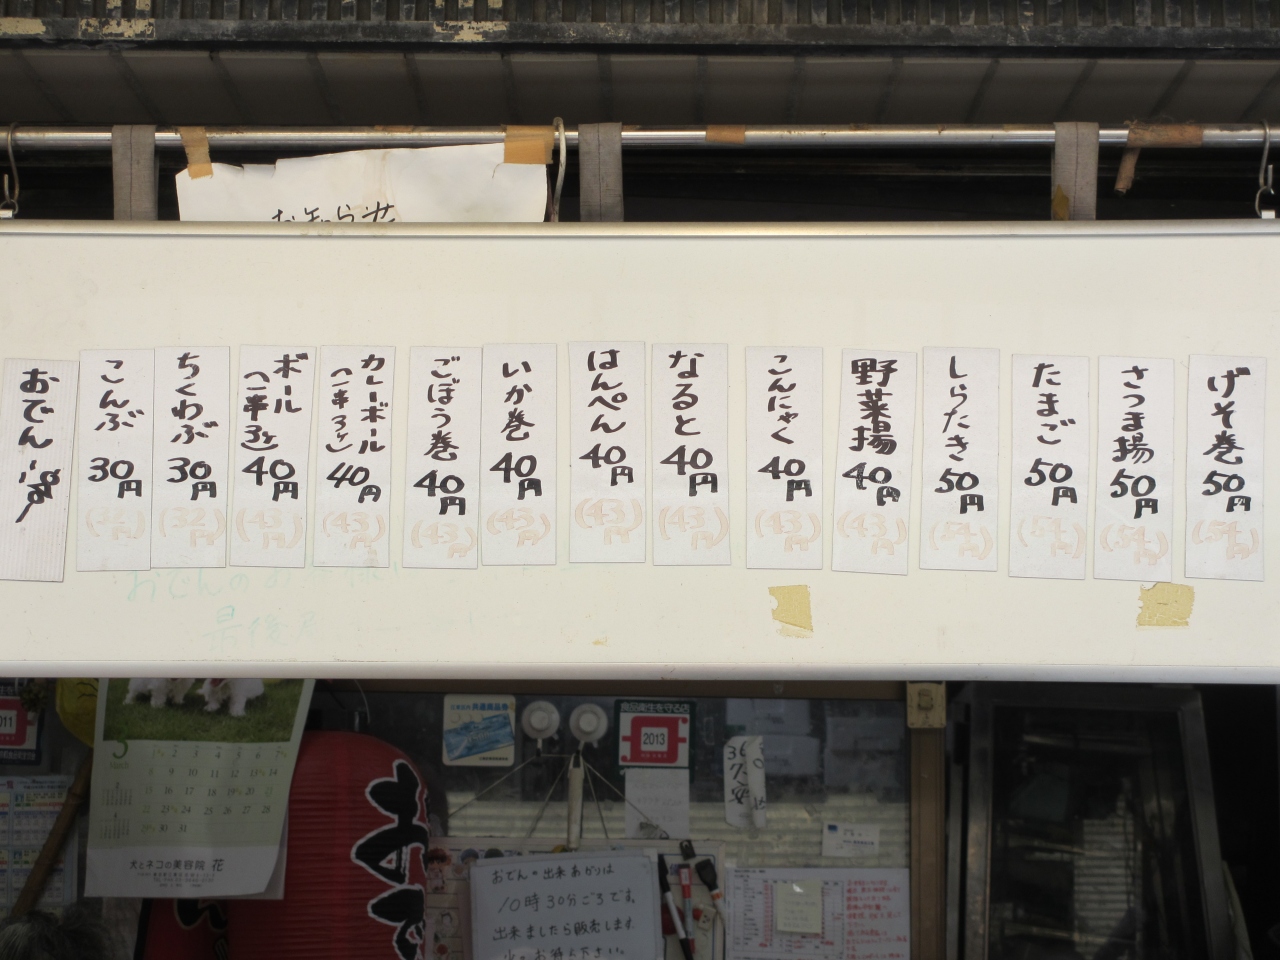 お知らせ
おでん
こんぶ
30円
(32円)
ちくわぶ
30円
(32円)
ボール
(一串3ヶ)
40円
(43円)
カレーボール
(一串3ヶ)
40円
(43円)
ごぼう巻
40円
(43円)
いか巻
40円
(43円)
はんぺん
40円
(43円)
なると
40円
(43円)
こんにゃく
40円
(43円)
野菜揚
40円
(43円)
しらたき
50円
(54円)
たまご
50円
(54円)
さつま揚
50円
(54円)
げそ巻
50円
(54円)
おでんのお
最後尾
2011
3
犬とネコの美容院 花
共通商品券
食品衛生を守る店
2013
おでんの出来あがりは
10時30分ごろです。
出来ましたら販売します